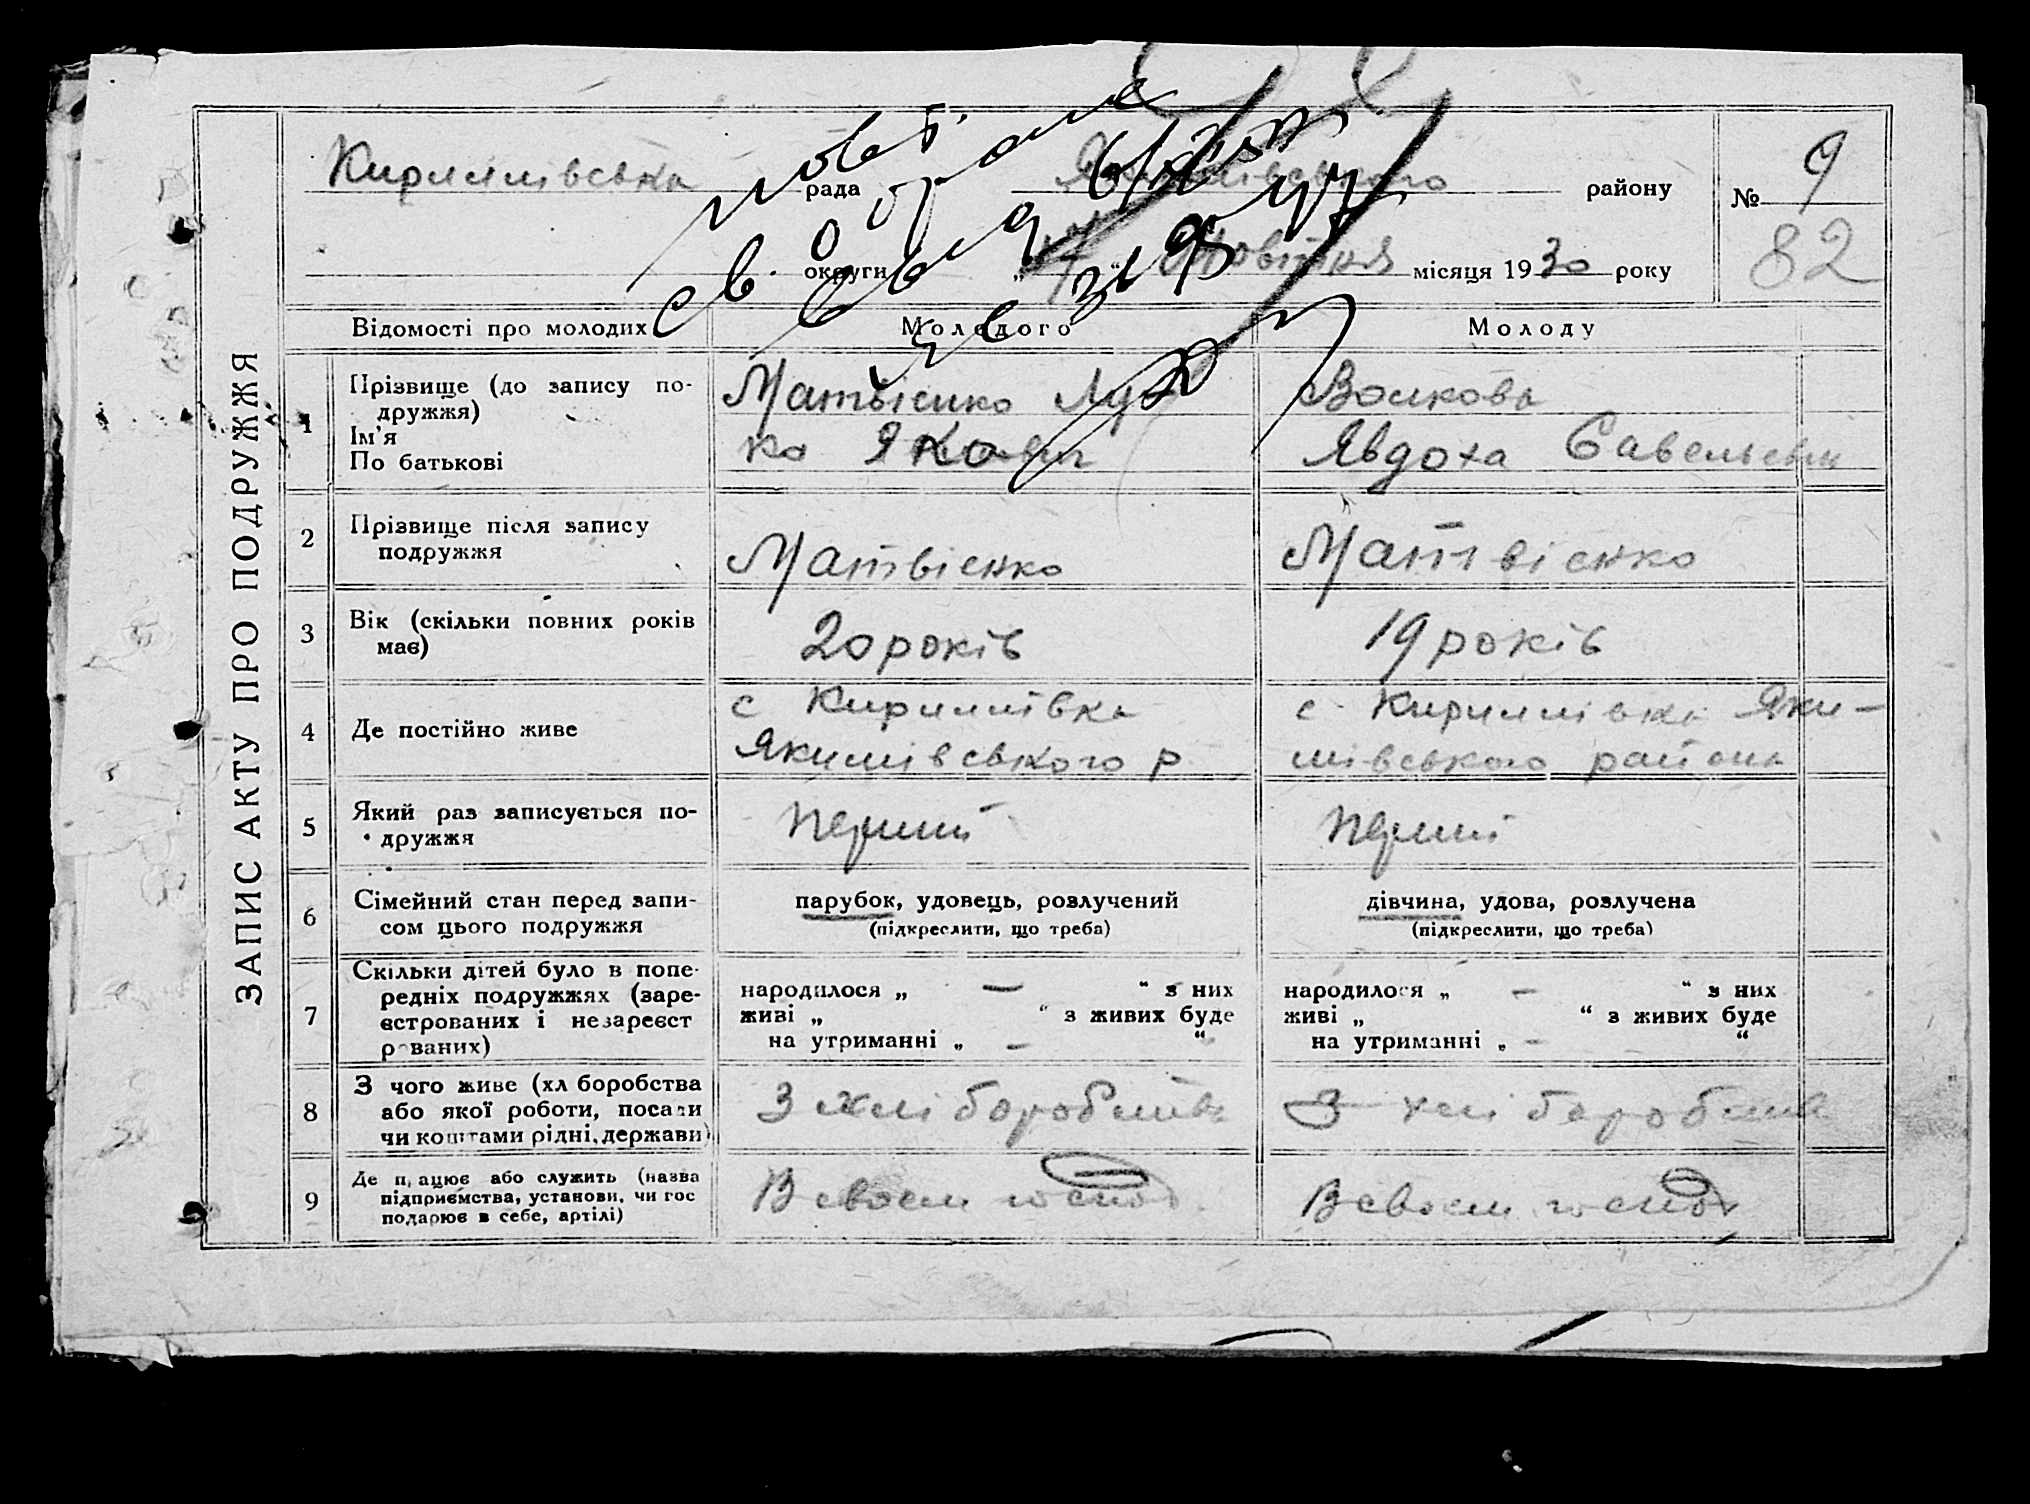 ЗАПИС АКТУ ПРО ПОДРУЖЖЯ
Кирилівська рада Якимівського району № 9
округи „ “ Жовтня місяця 1930 року 82
повт.
св.
Відомості про молодих Молодого Молоду
1 Прізвище (до запису по-
дружжя)
Ім’я
По батькові
Матвієнко Лу
ка Якович
Волкова
Явдоха Савельевн
2 Прізвище після запису
подружжя
Матвієнко Матвієнко
3 Вік (скільки повних років
має)
20 років 19 років
4 Де постійно живе
с Кирилівка
Якимівського р
с Кирилівка Яки-
мівського района
5 Який раз записується по-
дружжя
перший перший
6 Сімейний стан перед запи-
сом цього подружжя
парубок, удовець, розлучений
(підкреслити, що треба)
дівчина, удова, розлучена
(підкреслити, що треба)
7 Скільки дітей було в попе-
редніх подружжях (заре-
єстрованих і незареєст
рованих)
народилося „ — “ з них
живі „ “ з живих буде
на утриманні „ — “
народилося „ — “ з них
живі „ “ з живих буде
на утриманні „ — “
8 З чого живе (хліборобства
або якої роботи, посади
чи коштами рідні, держави)
З хліборобства З хліборобства
9 Де працює або служить (назва
підприємства, установи, чи гос
подарює в себе, артілі)
В своем господ В своем господ